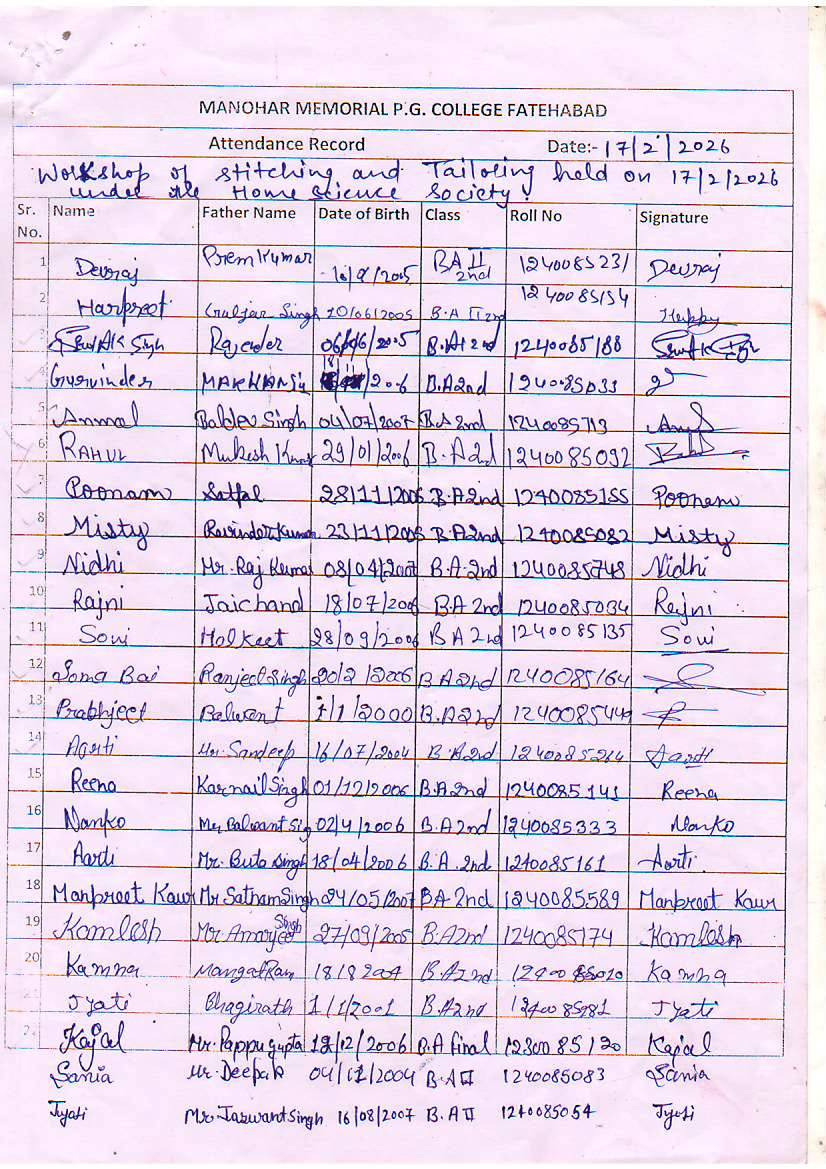 MANOHAR MEMORIAL P.G. COLLEGE FATEHABAD
Attendance Record Date:- 17/2/2026
Workshop of stitching and Tailoring held on 17/2/2026
under the Home Science Society.
Sr. No. Name Father Name Date of Birth Class Roll No Signature
1 Devraj Prem Kumar BA II 2nd 1240085231 Devraj
2 Harpreet Gurjar Singh 10/06/2005 B.A II 2nd 1240085154 Happy
3 Rajender B.A 2nd 1240085188
4 Gurvinder B.A 2nd 1240085033
5 Anmol Baldev Singh 04/07/2007 B.A 2nd 1240085713
6 RAHUL Mukesh Kumar 29/01/2006 B.A 2nd 1240085092
7 Poonam Satpal 28/11/2006 B.A 2nd 1240085155 Poonam
8 Misty Ravinder Kumar 23/11/2006 B.A 2nd 1240085082 Misty
9 Nidhi Mr. Raj Kumar 08/04/2007 B.A. 2nd 1240085748 Nidhi
10 Rajni Jaichand 18/07/2006 B.A 2nd 1240085034 Rajni
11 Soni Holkeet 28/09/2006 B A 2nd 1240085135 Soni
12 Soma Bai Ranjeet Singh 20/2/2006 B A 2nd 1240085164
13 Prabhjeet Balwant 1/1/2000 B.A 2nd
14 Aarti Mr. Sandeep 16/07/2004 B.A 2nd 1240085264 Aarti
15 Reena Karnail Singh 01/12/2006 B.A 2nd 1240085141 Reena
16 Nanko Mr. Balwant Sig 02/4/2006 B.A 2nd 1240085333 Nanko
17 Aarti Mr. Buta Singh 18/04/2006 B.A. 2nd 1240085161 Aarti
18 Manpreet Kaur Mr Satnam Singh 24/05/2007 BA 2nd 1240085589 Manpreet Kaur
19 Komlesh Mr. Amarjeet Singh 27/09/2005 B.A 2nd 1240085174 Komlesh
20 Kamna Mangat Ram B.A 2nd Kamna
2 Jyati Bhagirath 1/1/2001 B.A 2nd Jyati
2 Kajal Mr. Pappu gupta 12/12/2006 B.A final Kajal
Sania Mr. Deepak 04/12/2004 B.A II 1240085083 Sania
Jyoti Mr. Jaswant Singh 16/08/2007 B.A II 1240085054 Jyoti